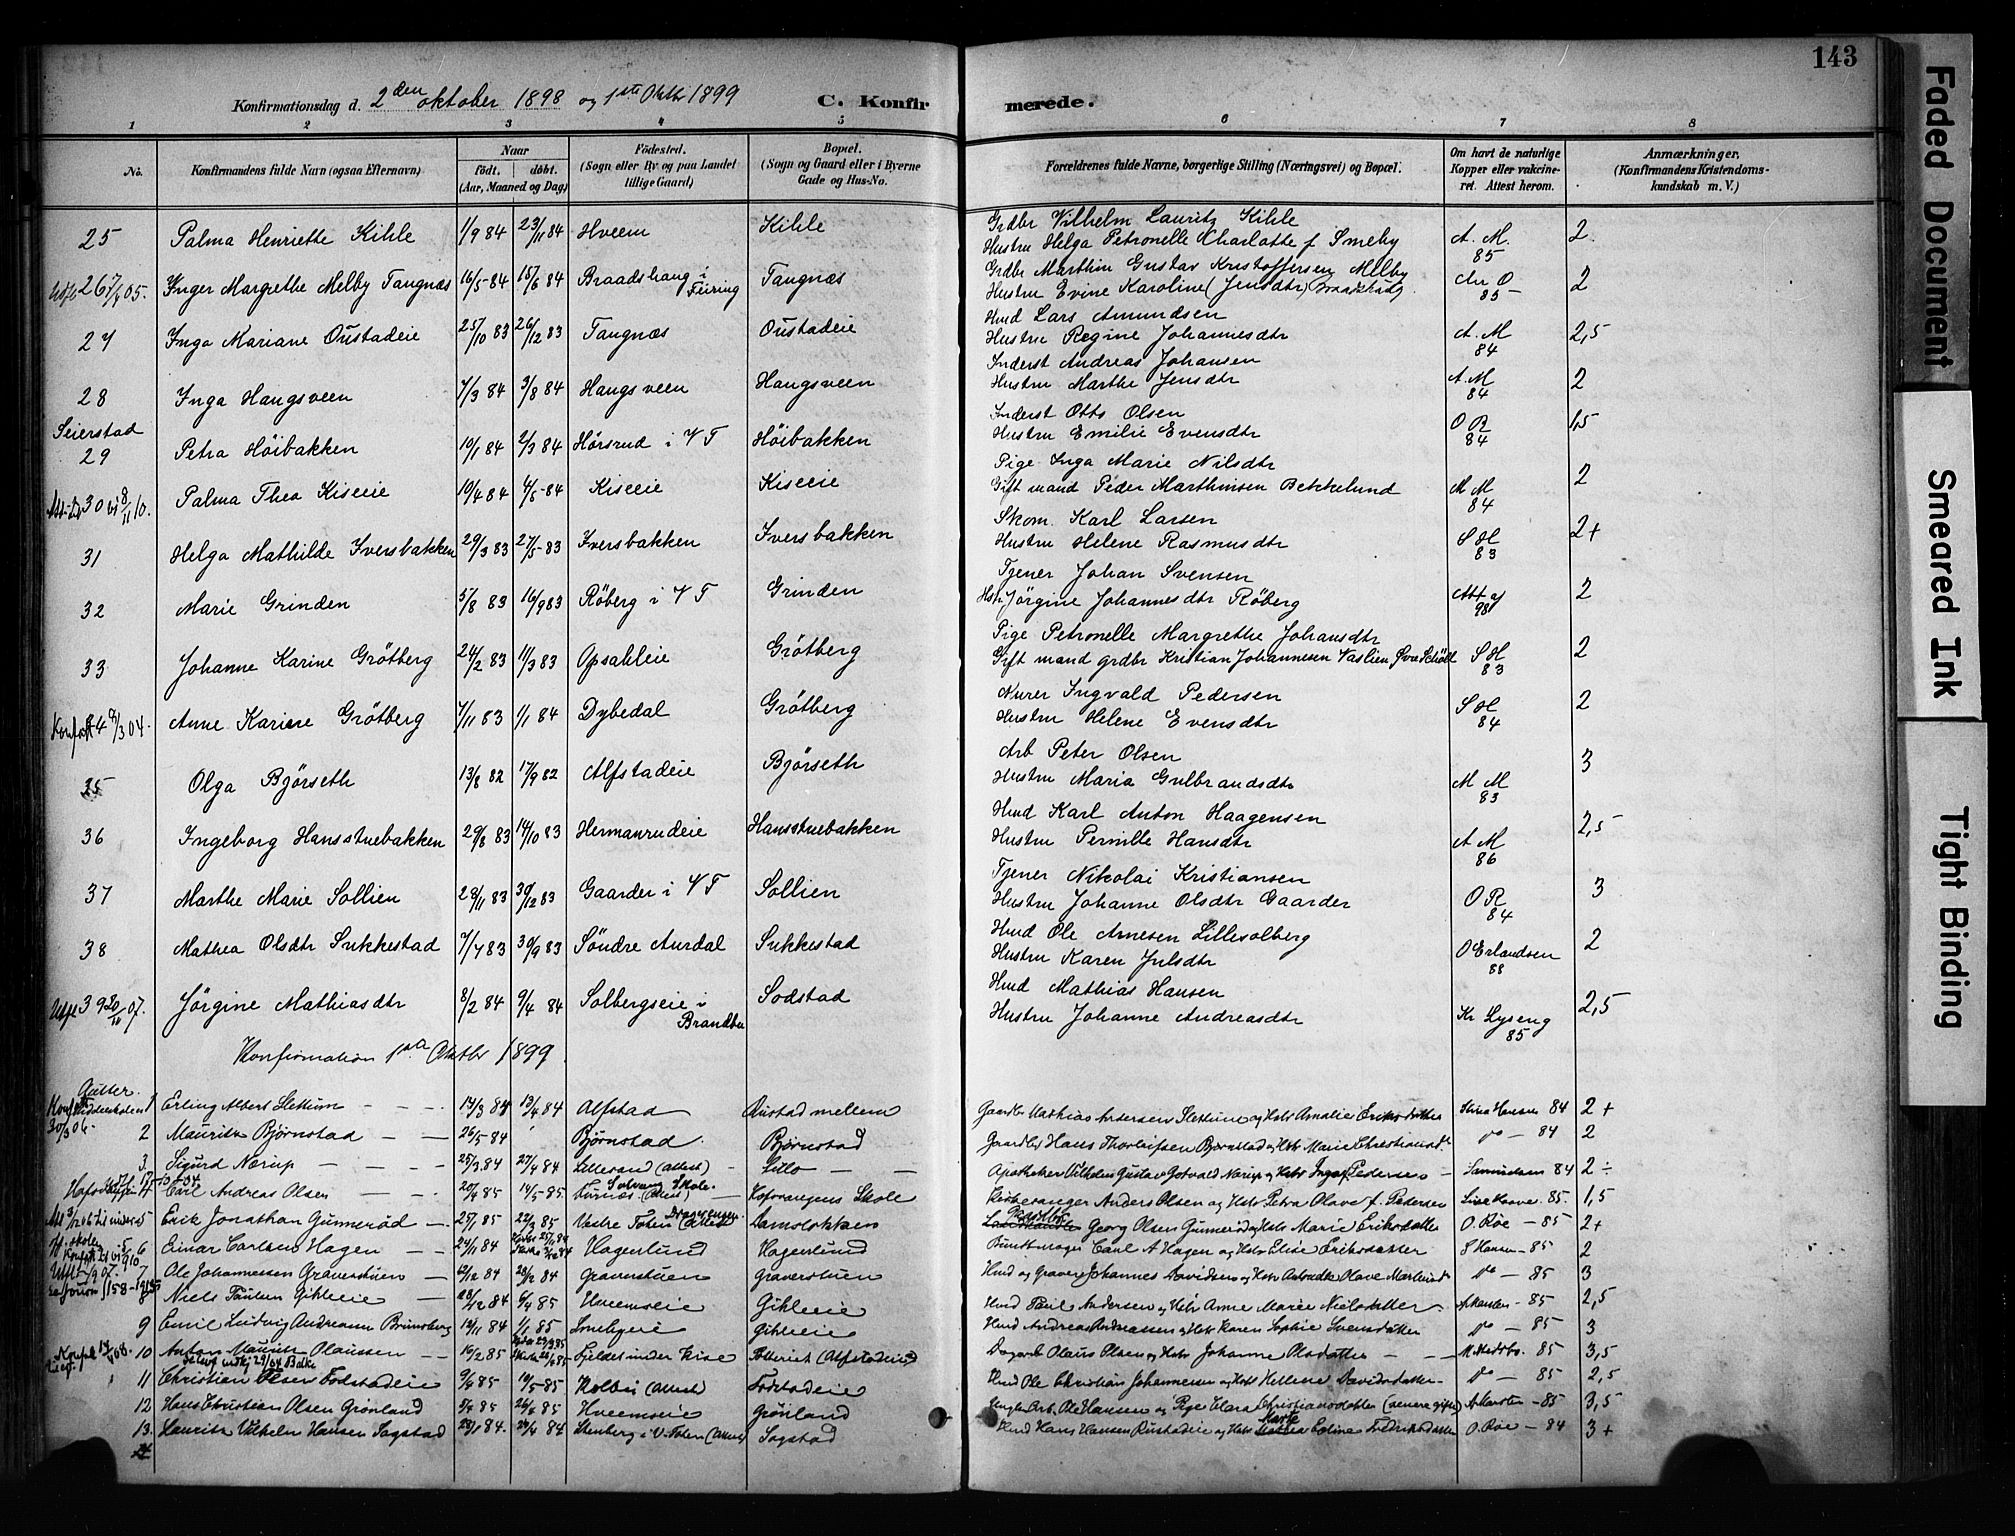 143
Konfirmationsdag d. 2den oktober 1898 og 1ste Oktbr 1899 C. Konfirmerede.
1 2 3 4 5 6 7 8
No. Konfirmandens fulde Navn (ogsaa Efternavn) Naar födt. döbt. (Aar, Maaned og Dag) Födested. (Sogn eller By og paa Landet tillige Gaard) Bopæl. (Sogn og Gaard eller i Byerne Gade og Hus-No. Forældrenes fulde Navne, borgerlige Stilling (Næringsvei) og Bopæl. Om havt de naturlige Kopper eller vaccineret. Attest herom. Anmærkninger. (Konfirmandens Kristendomskundskab m. V.)
25 Palma Henriette Kihle 1/9 84 23/11 84 Hveem Kihle Grdbr Vilhelm Lauritz Kihle
Hustru Helga Petronelle Charlotte f. Smeby A. M. 85 2
26 Inger Margrethe Melby Tangnæs 16/5-84 15/6 84 Braadshaug i Feiring Tangnæs Grdbr Marthin Gustav Kristoffersen Melby
Hustru Evine Karoline (Jensdtr) 85 2
27 Inga Mariane Oustadeie 25/10 83 26/12 83 Tangnæs Oustadeie Hmd Lars Amundsen
Hustru Regine Johannesdtr A. M 84 2,5
28 Inga Haugsveen 7/3 84 3/8 84 Haugsveen Haugsveen Inderst Andreas Johansen
Hustru Marthe Jensdtr A. M 84 2
Seierstad
29 Petra Höibakken 10/1 84 2/3 84 Hörsrud i V T Höibakken Inderst Otto Olsen
Hustru Emilie Evensdtr O R 84 1,5
30 Palma Thea Kiseie 10/4 84 4/5-84 Kiseie Kiseie Pige Inga Marie Nilsdtr
Gift mand Peder Marthinsen Bekkelund M M 84 2
31 Helga Mathilde Iversbakken 29/3 83 27/5-83 Iversbakken Iversbakken Skom. Karl Larsen
Hustru Helene Rasmusdtr S H 83 2+
32 Marie Grinden 5/8 83 16/9 83 Röberg i V T Grinden Tjener Johan Svensen
Hstr Jörgine Johannesdtr Röberg Att af 98 2
33 Johanne Karine Grötberg 24/2 83 11/3 83 Opsahleie Grötberg Pige Petronelle Margrethe Johansdtr
Gift mand grdbr Kristian Johannesen Vaslien S H 83 2
34 Anne Karine Grötberg 7/11 83 1/1 84 Dybedal Grötberg Murer Ingvald Pedersen
Hustru Helene Evensdtr S H 84 2
35 Olga Björseth 13/8 82 17/9 82 Alfstadeie Björseth Arb Peter Olsen
Hustru Maria Gulbrandsdtr M M 83 3
36 Ingeborg Hansstuebakken 29/8 83 14/10 83 Hermanrudeie Hansstuebakken Hmd Karl Anton Haagensen
Hustru Pernille Hansdtr A M 86 2,5
37 Marthe Marie Sollien 29/11 83 30/12 83 Gaarder i V T Sollien Tjener Nikolai Kristiansen
Hustru Johanne Olsdtr Gaarder O R 84 3
38 Mathea Olsdtr Sukkestad 7/7 83 30/9 83 Söndre Aurdal Sukkestad Hmd Ole Arnesen Lillesolberg
Hustru Karen Julsdtr O Erlandsen 88 2
39 Jörgine Mathiasdtr 8/2 84 9/4 84 Solbergseie i Brandbu Sodstad Hmd Mathias Hansen
Hustru Johanne Andreasdtr Kr Lyseng 85 2,5
Konfirmation 1ste Oktbr 1899
Gutter.
1 Erling Albert Slettum 14/3 84 13/4 84 Alfstad Rustad mellem Gaardbr Mathias Andersen Slettum og Hstr Amalie Eriksdatter Hansen 84 2+
2 Mauritz Bjørnstad 26/5 84 Bjørnstad Bjørnstad Gaardbr Hans Thorleifsen Bjørnstad og Hstr Marie Christiansdr do - 84 2
3. Sigurd Nærup 25/3 84 27/4 84 Lillesand (Attest) Lillo Apotheker Vilhelm Gustav Gotvald Nærup og Hstr Inga f Pedersen Samuelsen 84 2÷
4 Carl Andreas Olsen 20/4 85 14/5 85 (Attest) Hofsvangens Skole Kirkesanger Anders Olsen og Hstr Petra Olave f. Pedersen 85. 1,5
5 Erik Jonathan Gunnerød 25/1 85 22/3 85 Vestre Toten (Attest) Damslokken Georg Olsen Gunnerød og Hstr Marie Eriksdatter O. Røe - 85 2+
6 Einar Carlsen Hagen 24/11 84 Hagenlund Hagenlund Buntmager Carl A Hagen og Hstr Elise Eriksdatter S Hansen - 85 2
7 Ole Johannessen Graverstuen 12/12 84 28/12 84 Graverstuen Graverstuen Hmd og Graver Johannes Davidsen og Hstr Olave do - 85 3
8 Niels Paulsen Gihleeie 28/12 84 6/4 85 Hveemseie Gihleeie Hmd Paul Andersen og Hstr Anne Marie Nielsdatter A Karsten - 85 2,5
9 Emil Ludvig Andreassen Brunsberg 12/11 84 1/1 85 Smebyeie Gihleeie Hmd Andreas Andreassen og Hstr Karen Sophie Svensdatter do - 85 3
10 Anton Mauritz Olaussen 16/2 85 Fjeldet under Kise (Alfstadeie) Dagarb Olaus Olsen og Hstr Johanne Olsdatter 85 3,5
11 Christian Olsen Fodstadeie 9/4 85 10/5-85 Holbu (Attest) Fodstadeie Hmd Ole Christian Johannessen og Hstr Hellene Davidsdatter do - 85 2,5
12 Hans Christian Olsen Grönland 85 26/4 85 Hveemseie Grönland Ungk. Arb. Ole Hansen og Pige Clara Christiansdatter (senere gifte) A Karsten - 85 3,5
13. Lauritz Vilhelm Hansen Sagstad 23/1 84. 84 Stenberg i V. Toten (Attest) Sagstad Hmd Hans Hansen Rustadeie og Hstr Marte Eline Fredriksdatter O. Røe - 84 3+
Faded Document
Smeared Ink
Tight Binding